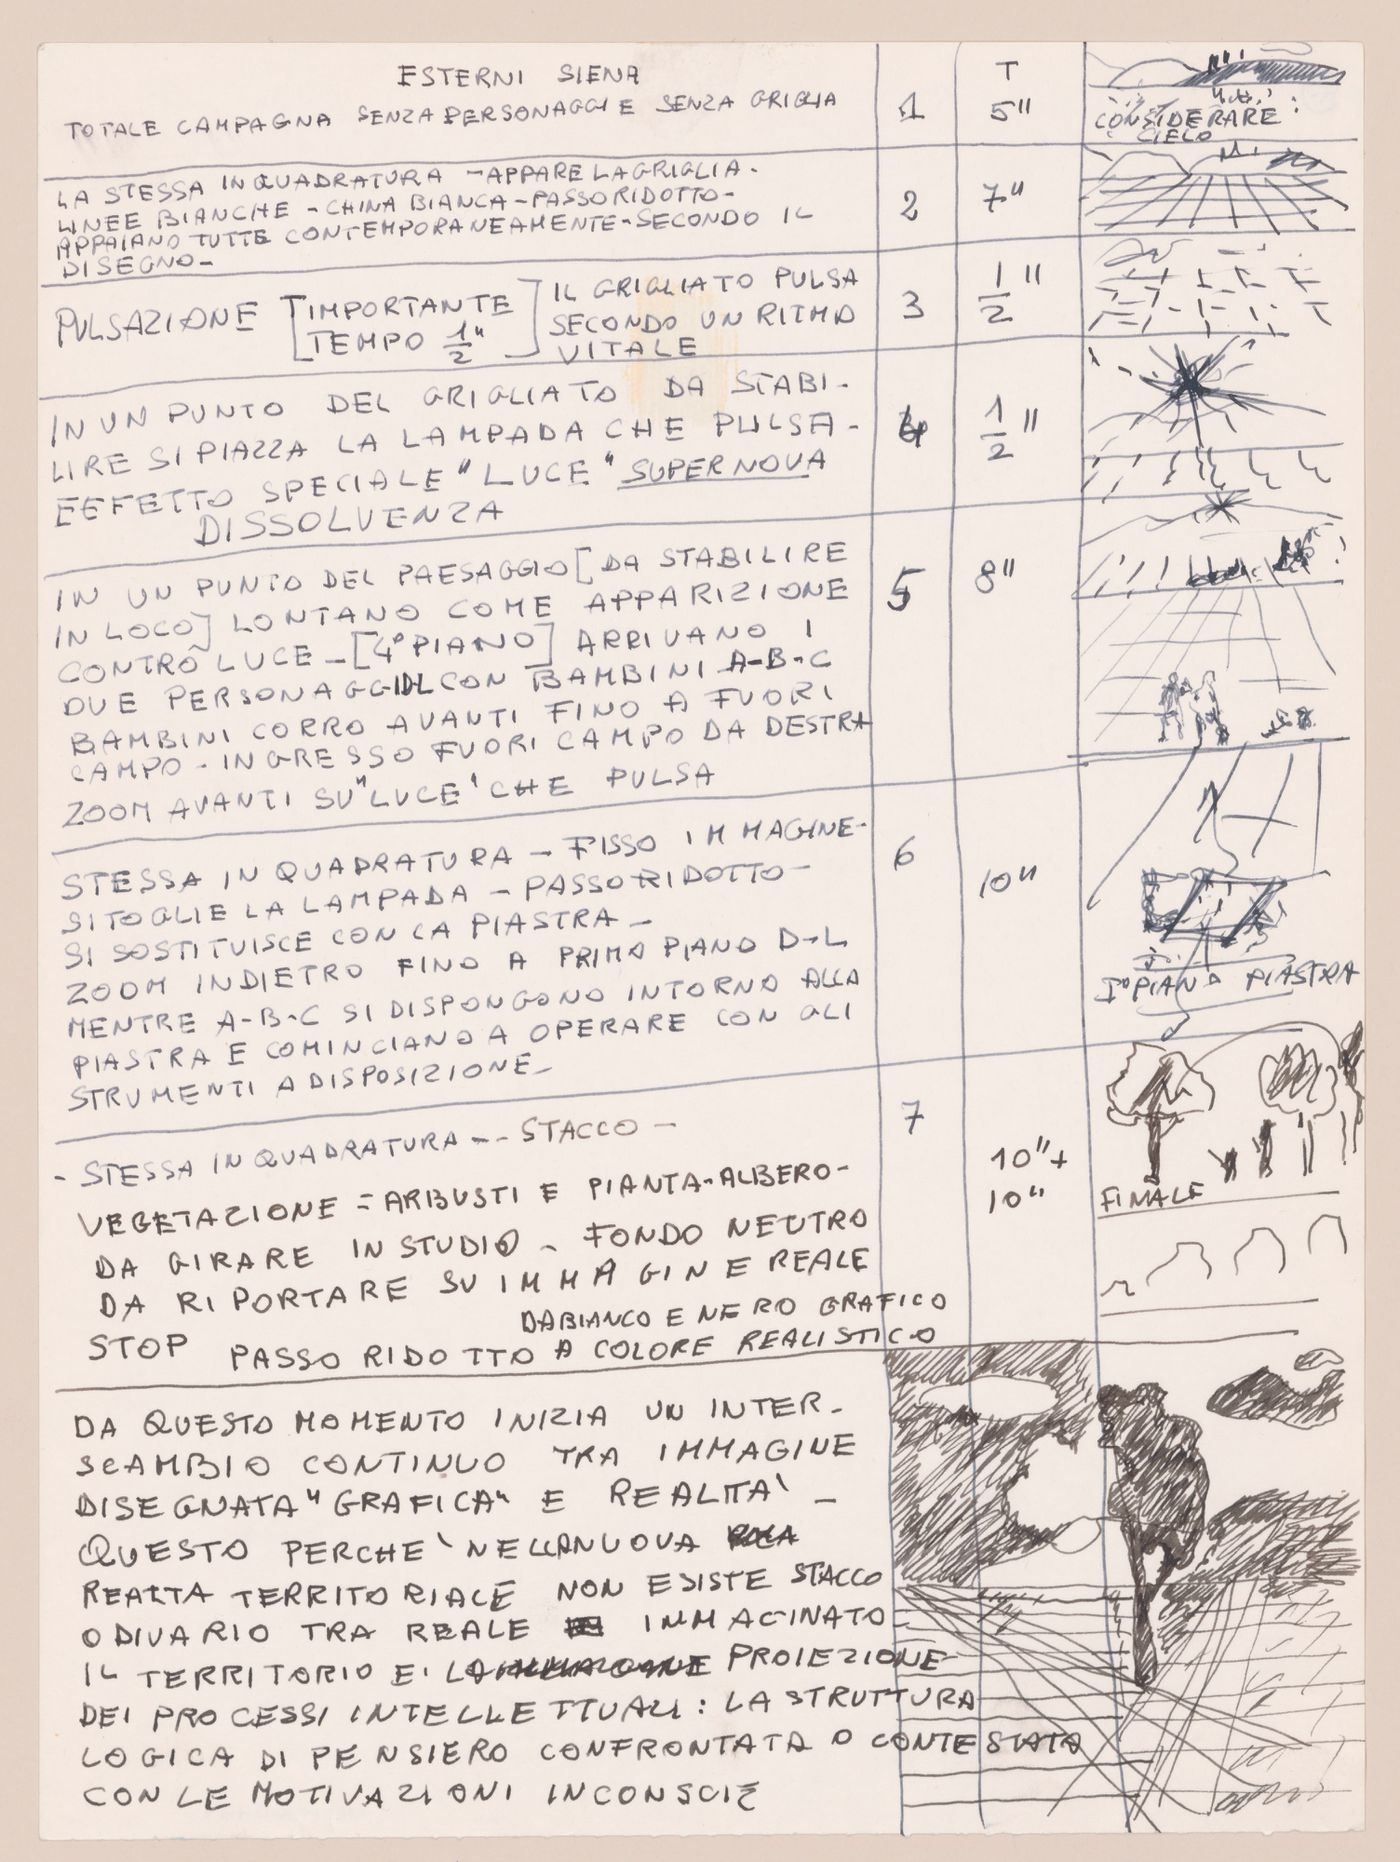 ESTERNI SIENA
TOTALE CAMPAGNA SENZA PERSONAGGI E SENZA GRIGLIA
1
T
5"
CONSIDERARE:
CIELO
LA STESSA INQUADRATURA - APPARE LA GRIGLIA -
LINEE BIANCHE - CHINA BIANCA - PASSO RIDOTTO -
APPAIANO TUTTE CONTEMPORANEAMENTE - SECONDO IL
DISEGNO -
2
7"
PULSAZIONE [IMPORTANTE
TEMPO 1/2"]
IL GRIGLIATO PULSA
SECONDO UN RITMO
VITALE
3
1/2"
IN UN PUNTO DEL GRIGLIATO DA STABI-
LIRE SI PIAZZA LA LAMPADA CHE PULSA -
EFFETTO SPECIALE "LUCE" SUPERNOVA
DISSOLVENZA
4
1/2"
IN UN PUNTO DEL PAESAGGIO [DA STABILIRE
IN LOCO] LONTANO COME APPARIZIONE
CONTRO LUCE - [4° PIANO] ARRIVANO I
DUE PERSONAGGI DL CON BAMBINI A-B-C
BAMBINI CORRO AVANTI FINO A FUORI
CAMPO - INGRESSO FUORI CAMPO DA DESTRA
ZOOM AVANTI SU "LUCE" CHE PULSA
5
8"
STESSA INQUADRATURA - FISSO IMMAGINE -
SI TOGLIE LA LAMPADA - PASSO RIDOTTO -
SI SOSTITUISCE CON LA PIASTRA -
ZOOM INDIETRO FINO A PRIMO PIANO D-L
MENTRE A-B-C SI DISPONGONO INTORNO ALLA
PIASTRA E COMINCIANO A OPERARE CON GLI
STRUMENTI A DISPOSIZIONE -
6
10"
I° PIANO PIASTRA
- STESSA INQUADRATURA -- STACCO -
VEGETAZIONE = ARBUSTI E PIANTA - ALBERO -
DA GIRARE IN STUDIO - FONDO NEUTRO
DA RIPORTARE SU IMMAGINE REALE
DA BIANCO E NERO GRAFICO
STOP PASSO RIDOTTO A COLORE REALISTICO
7
10"+
10"
FINALE
DA QUESTO MOMENTO INIZIA UN INTER-
SCAMBIO CONTINUO TRA IMMAGINE
DISEGNATA "GRAFICA" E REALTA' -
QUESTO PERCHE' NELLA NUOVA
REALTA TERRITORIALE NON ESISTE STACCO
O DIVARIO TRA REALE IMMAGINATO -
IL TERRITORIO E' LA PROIEZIONE
DEI PROCESSI INTELLETTUALI: LA STRUTTURA
LOGICA DI PENSIERO CONFRONTATA O CONTESTATA
CON LE MOTIVAZIONI INCONSCIE